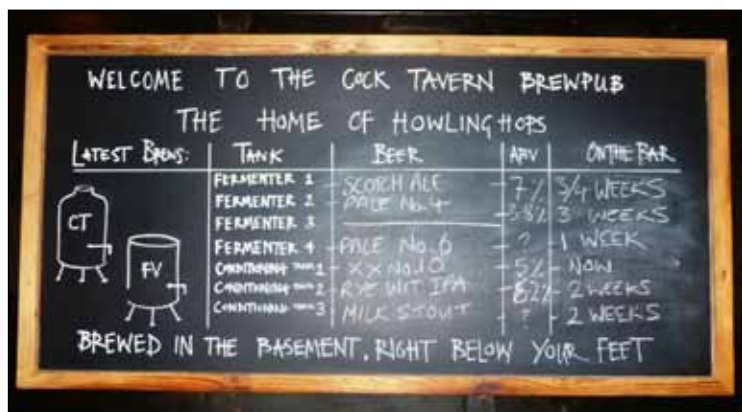 WELCOME TO THE COCK TAVERN BREWPUB
THE HOME OF HOWLING HOPS
LATEST BREWS: TANK BEER ABV ON THE BAR
FERMENTER 1 - SCOTCH ALE - 7% 3/4 WEEKS
FERMENTER 2 - PALE No.4 - 3.8% 3 WEEKS
FERMENTER 3
FERMENTER 4 - PALE No.6 - ? - 1 WEEK
CONDITIONING TANK 1 - XX No.10 - 5% - NOW
CONDITIONING TANK 2 - RYE WIT IPA - 2 WEEKS
CONDITIONING TANK 3 - MILK STOUT - ? - 2 WEEKS
CT
FV
BREWED IN THE BASEMENT. RIGHT BELOW YOUR FEET